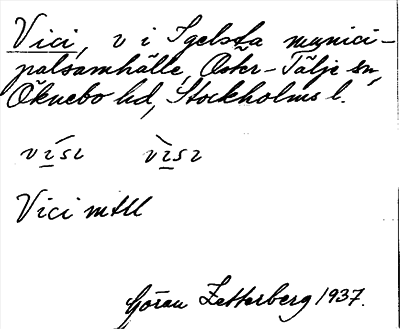 Vici, v i Igelsta munici-
palsamhälle, Öster-Tälje sn,
Öknebo hd, Stockholms l.
vísı vìsı
Vici mtll
Göran Zetterberg 1937.